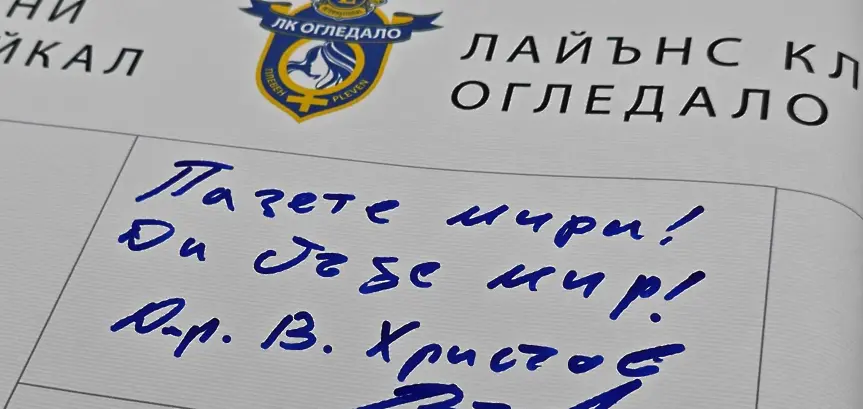 НИ
ЙКАЛ
ЛК ОГЛЕДАЛО
ПЛЕВЕН
PLEVEN
ЛАЙЪНС КЛ
ОГЛЕДАЛО
Пазете мири!
Да бъде мир!
Д-р. В. Христов